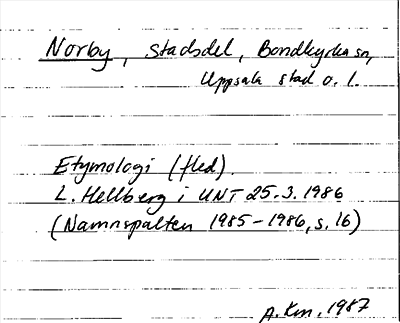 Norby, stadsdel, Bondkyrka sn,
Uppsala stad o. l.
Etymologi (fled).
L. Hellberg i UNT 25.3.1986
(Namnspalten 1985-1986, s. 16)
A. Km, 1987